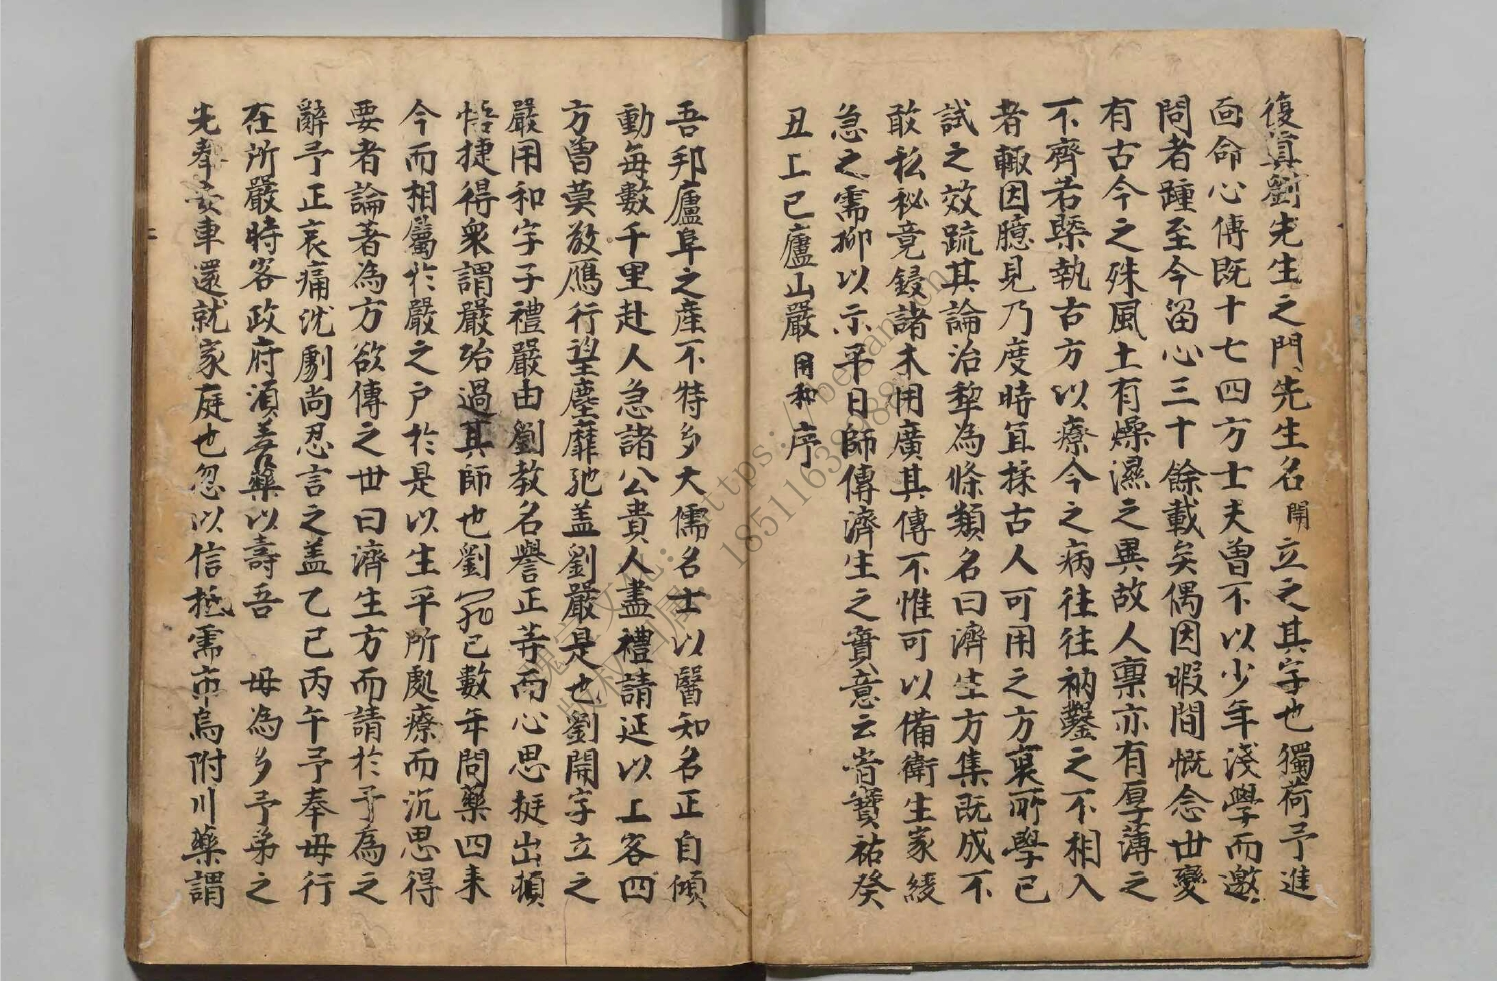 復真劉先生之門先生名開立之其字也獨荷予進
面命心傳既十七四方士夫曾不以少年淺學而邀
問者踵至今留心三十餘載矣偶因暇間慨念世變
有古今之殊風土有燥濕之異故人稟亦有厚薄之
不齊若槩執古方以療今之病往往衲鑿之不相入
者輙因臆見乃度時宜採古人可用之方裒所學已
試之效疏其論治犂為條類名曰濟生方集既成不
敢私秘竟鋟諸木用廣其傳不惟可以備衛生家緩
急之需抑以示平日師傳濟生之實意云旹寶祐癸
丑上巳廬山嚴用和序
吾邦廬阜之產不特多大儒名士以醫知名正自傾
動每數千里赴人急諸公貴人盡禮請延以上客四
方曾莫敢鴈行望塵靡弛盖劉嚴是也劉開字立之
嚴用和字子禮嚴由劉教名譽正等而心思挺出頓
悟捷得衆謂嚴殆過其師也劉死已數年問藥四来
今而相屬於嚴之户於是以生平所處療而沉思得
要者論著為方欲傳之世曰濟生方而請於予為之
辭予正哀痛沈劇尚忍言之盖乙巳丙午予奉母行
在所嚴時客政府湏善藥以壽吾 母為多予弟之
先奉安車還就家庭也忽以信抵需市烏附川藥謂